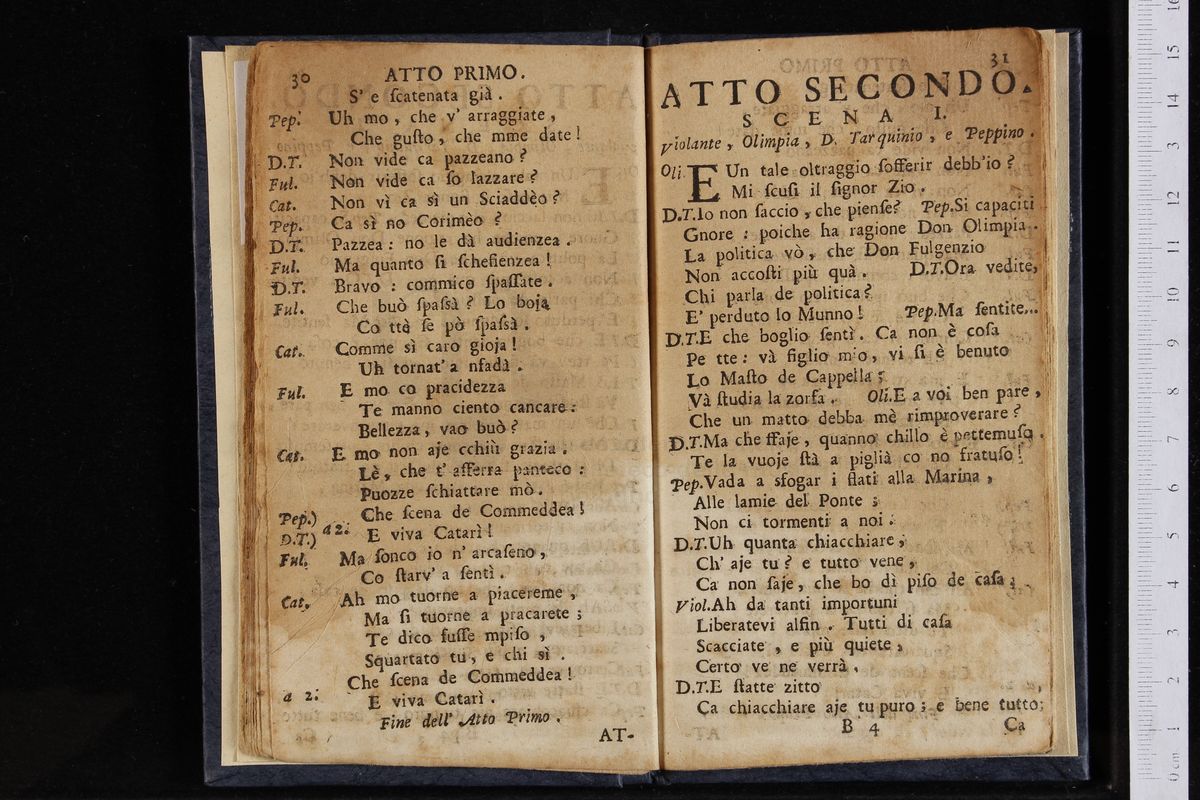 30 ATTO PRIMO.
S' e ſcatenata già.
Pep. Uh mo, che v' arraggiate,
Che guſto, che mme date!
D.T. Non vide ca pazzeano?
Ful. Non vide ca ſo lazzare?
Cat. Non vì ca sì un Sciaddèo?
Pep. Ca sì no Corimèo?
D.T. Pazzea: no le dà audienzea.
Ful. Ma quanto ſi ſchefienzea!
D.T. Bravo: commico ſpaſſate.
Ful. Che buò ſpaſsà? Lo boja
Co ttè ſe pò ſpaſsà.
Cat. Comme sì caro gioja!
Uh tornat' a nfadà.
Ful. E mo co pracidezza
Te manno ciento cancare:
Bellezza, vao buò?
Cat. E mo non aje cchiù grazia.
Lè, che t' afferra panteco:
Puozze ſchiattare mò.
Pep.) Che ſcena de Commeddea!
D.T.) a 2. E viva Catarì!
Ful. Ma ſonco io n' arcaſeno,
Co ſtarv' a ſentì.
Cat. Ah mo tuorne a piacereme,
Ma ſi tuorne a pracarete;
Te dico fuſſe mpiſo,
Squartato tu, e chi sì.
Che ſcena de Commeddea!
a 2. E viva Catarì.
Fine dell' Atto Primo.
AT-
31
ATTO SECONDO.
SCENA I.
Violante, Olimpia, D. Tarquinio, e Peppino.
Oli. E Un tale oltraggio ſofferir debb'io?
Mi ſcuſi il ſignor Zio.
D.T. Io non ſaccio, che pienſe? Pep. Si capaciti
Gnore: poiche ha ragione Don Olimpia.
La politica vò, che Don Fulgenzio
Non accoſti più quà. D.T. Ora vedite,
Chi parla de politica?
E' perduto lo Munno! Pep. Ma ſentite...
D.T. E che boglio ſentì. Ca non è coſa
Pe tte: và figlio mio, vi ſi è benuto
Lo Maſto de Cappella;
Và ſtudia la zorfa. Oli. E a voi ben pare,
Che un matto debba mè rimproverare?
D.T. Ma che ffaje, quanno chillo è pettemuſo.
Te la vuoje ſtà a piglià co no fratuſo!
Pep. Vada a sfogar i flati alla Marina,
Alle lamie del Ponte;
Non ci tormenti a noi.
D.T. Uh quanta chiacchiare,
Ch' aje tu? e tutto vene,
Ca non ſaje, che bo dì piſo de caſa;
Viol. Ah da tanti importuni
Liberatevi alfin. Tutti di caſa
Scacciate, e più quiete,
Certo ve ne verrà,
D.T. E ſtatte zitto
Ca chiacchiare aje tu puro; e bene tutto;
B 4 Ca